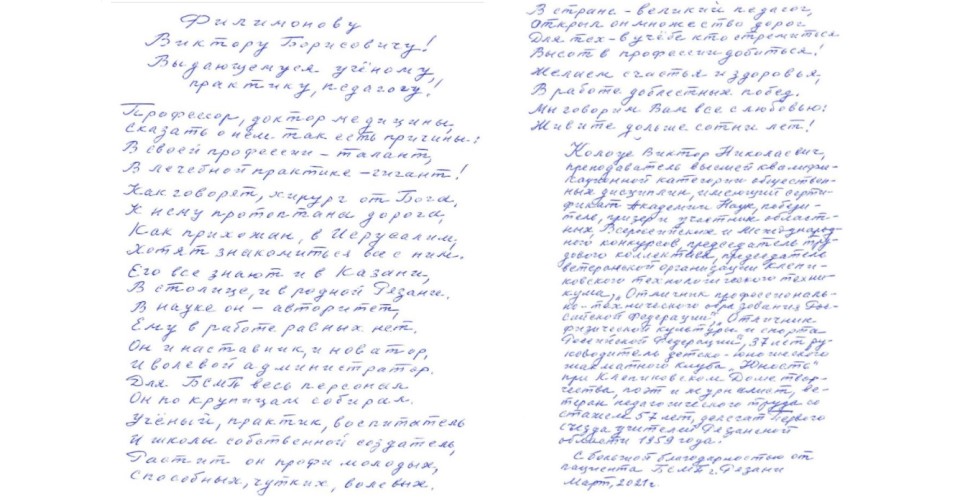 Филимонову
Виктору Борисовичу!
Выдающемуся учёному,
практику, педагогу!
Профессор, доктор медицины,
Сказать о нём так есть причины:
В своей профессии – талант,
В лечебной практике – гигант!
Как говорят, хирург от Бога,
К нему протоптана дорога,
Как прихожан, в Иерусалим,
Хотят знакомиться все с ним.
Его все знают и в Казани,
В столице, и в родной Рязани.
В науке он – авторитет,
Ему в работе равных нет.
Он и наставник, и новатор,
И волевой администратор.
Для БСМП весь персонал
Он по крупицам собирал.
Учёный, практик, воспитатель
И школы собственной создатель,
Растит он профи молодых,
Способных, чутких, волевых.
В стране – великий педагог,
Открыл он множество дорог
Для тех – в учёбе кто стремится
Высот в профессии добиться!
Желаем счастья и здоровья,
В работе доблестных побед.
Мы говорим Вам все с любовью:
Живите дольше сотни лет!
Виктор Николаевич,
преподаватель высшей квалифи-
кационной категории обществен-
ных дисциплин, имеющий серти-
фикат Академии Наук, победи-
тель, призер и участник област-
ных, Всероссийских и Международ-
ного конкурсов, председатель тру-
дового коллектива, председатель
ветеранской организации Клепи-
ковского технологического техни-
кума, „Отличник профессиональ-
но-технического образования Рос-
сийской Федерации", „Отличник
физической культуры и спорта
Российской Федерации", 37 лет ру-
ководитель детско-юношеского
шахматного клуба „Юность"
при Клепиковском Доме твор-
чества, поэт и журналист, ве-
теран педагогического труда со
стажем 57 лет, делегат Первого
съезда учителей Рязанской
области 1959 года.
С большой благодарностью от
пациента БСМП г. Рязани
Март, 2021г.